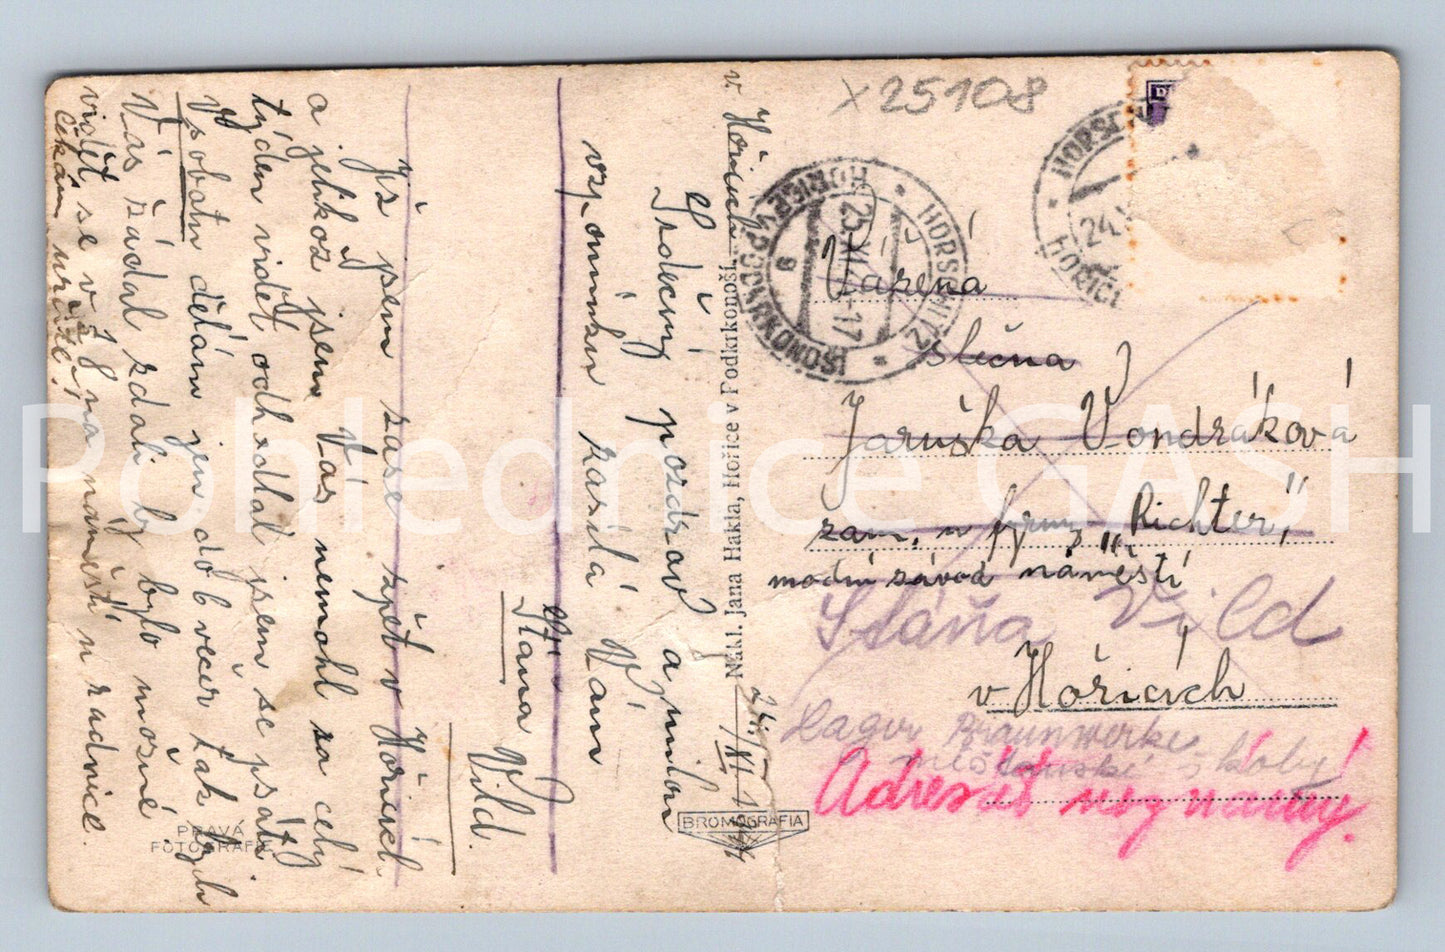 x 25108
v Hořicích
24./XI. 1944
Srdečný pozdrav a milou
vzpomínku zasílá Vám
Váš
Sláňa Vild.
Již jsem zase zpět v Hořicích
a jelikož jsem Vás nemohl za celý
týden vidět odhodlal jsem se psáti.
V sobotu dělám jen do 6 večer tak bych
Vás žádal zdali by bylo možné
vidět se v 7 8 na náměstí u radnice.
Čekám určitě!
PRAVÁ
FOTOGRAFIE
Nákl. Jana Hakla, Hořice v Podkrkonoší.
BROMOGRAFIA
HORSCHITZ
HOŘICE V PODKRKONOŠÍ
25. XI. 17
8
HORSCHITZ
HOŘICE
24.
Vážená
slečna
Jaruška Vondráková
zam. u firmy „Richter“
modní závod náměstí
v Hořicích
Sláňa Vild
Lager Braunwerke
měšťanské školy
Adresát neznámý.
Pohlednice GASH